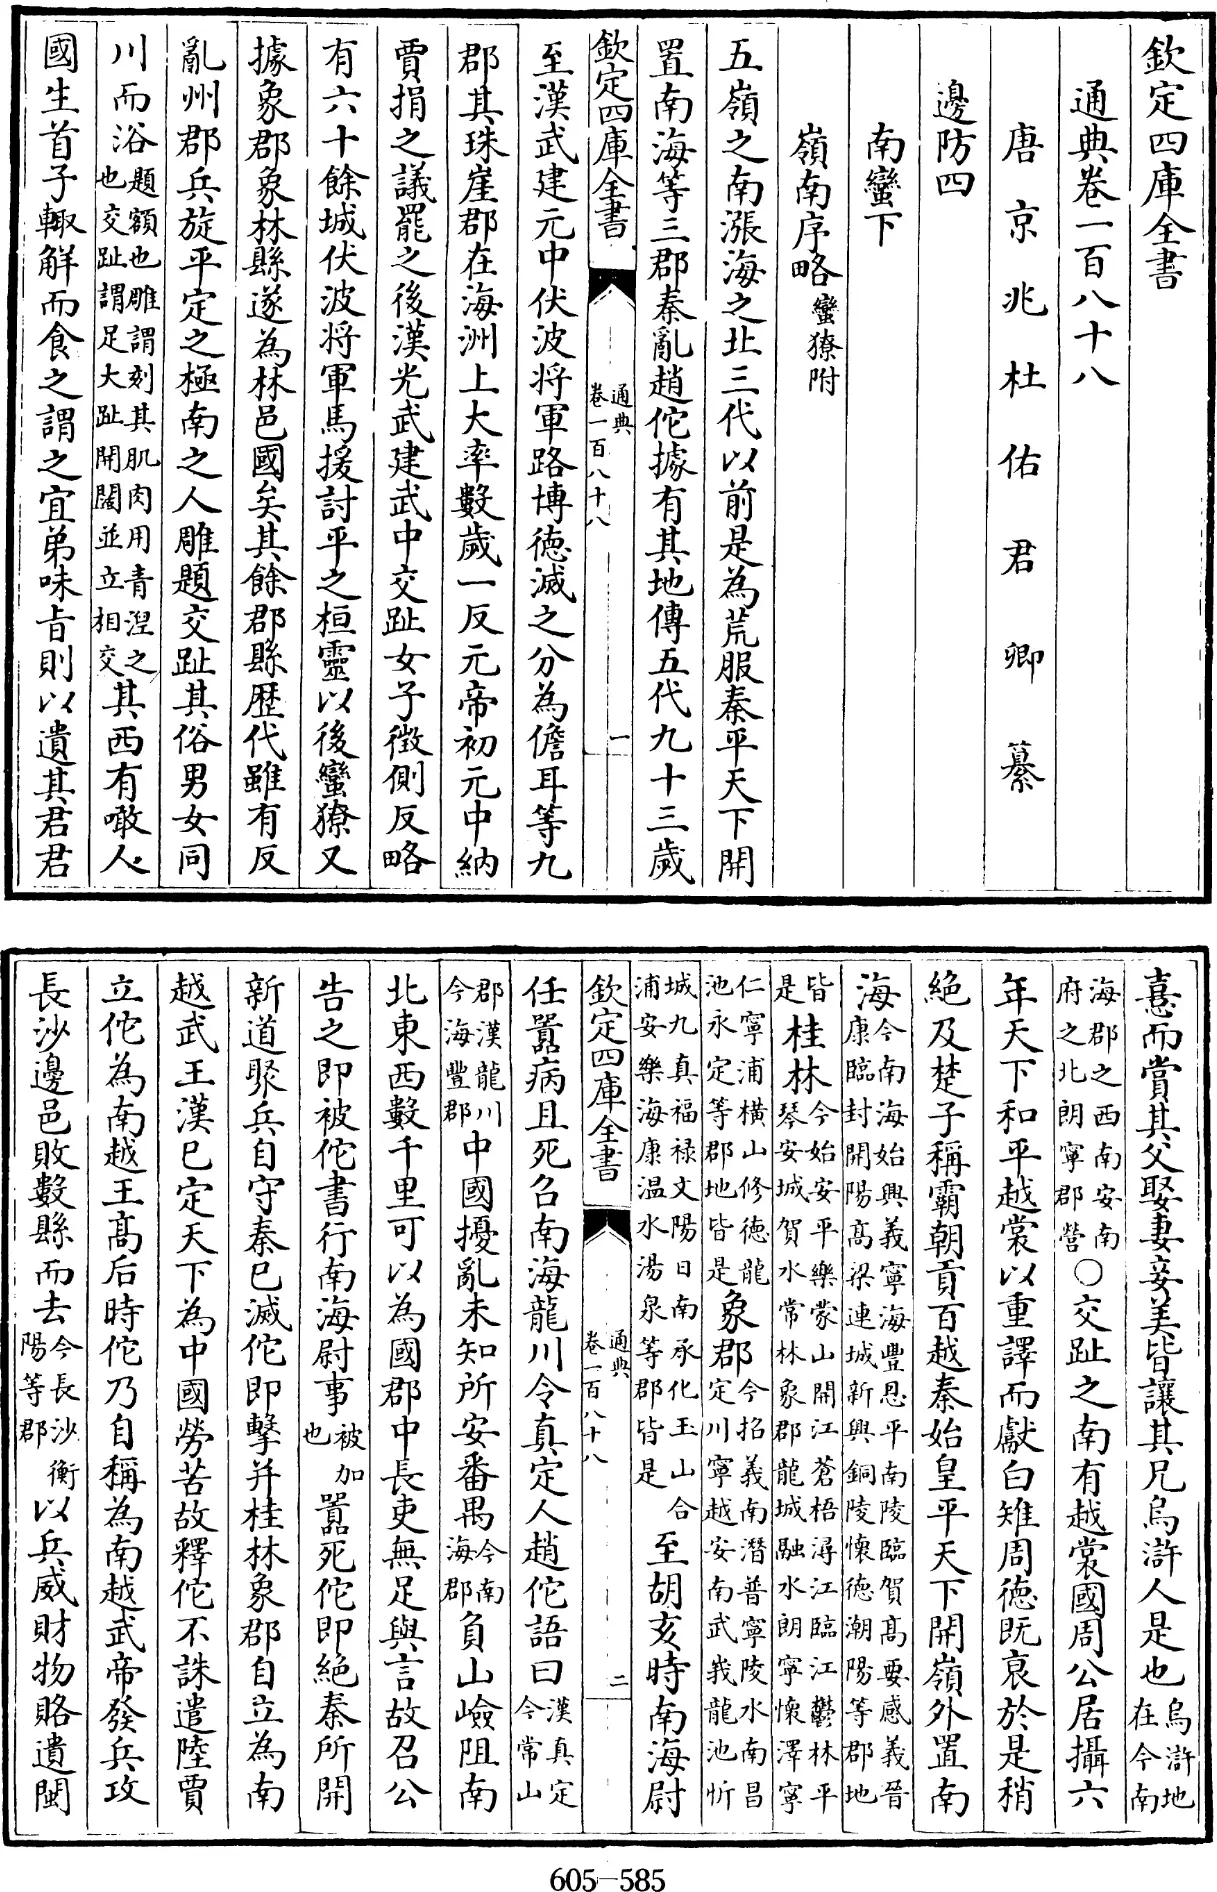 欽定四庫全書
通典卷一百八十八
唐京兆杜佑君卿纂
邊防四
南蠻下
嶺南序略蠻獠附
五嶺之南漲海之北三代以前是為荒服秦平天下開
置南海等三郡秦亂趙佗據有其地傳五代九十三歲
欽定四庫全書
通典
卷一百八十八
一
至漢武建元中伏波將軍路博德滅之分為儋耳等九
郡其珠崖郡在海洲上大率數歲一反元帝初元中納
賈捐之議罷之後漢光武建武中交趾女子徵側反略
有六十餘城伏波將軍馬援討平之桓靈以後蠻獠又
據象郡象林縣遂為林邑國矣其餘郡縣歷代雖有反
亂州郡兵旋平定之極南之人雕題交趾其俗男女同
川而浴題額也雕謂刻其肌肉用青湼之也交趾謂足大趾開闊並立相交其西有噉人
國生首子輙解而食之謂之宜弟味旨則以遺其君君
憙而賞其父娶妻妾美皆讓其兄烏滸人是也烏滸地在今南
海郡之西南安南府之北朗寧郡營〇交趾之南有越裳國周公居攝六
年天下和平越裳以重譯而獻白雉周德既衰於是稍
絕及楚子稱霸朝貢百越秦始皇平天下開嶺外置南
海今南海始興義寧海豐恩平南陵臨賀高要感義晉康臨封開陽高梁連城新興銅陵懷德潮陽等郡地
皆是桂林今始安平樂蒙山開江蒼梧潯江臨江鬱林平琴安城賀水常林象郡龍城融水朗寧懷澤寧
仁寧浦橫山修德龍池永定等郡地皆是象郡今招義南潛普寧陵水南昌定川寧越安南武峩龍池忻
城九真福禄文陽日南承化玉山合浦安樂海康温水湯泉等郡皆是至胡亥時南海尉
欽定四庫全書
通典
卷一百八十八
二
任嚻病且死召南海龍川令真定人趙佗語曰漢真定今常山
郡漢龍川今海豐郡中國擾亂未知所安番禺今南海郡負山嶮阻南
北東西數千里可以為國郡中長吏無足與言故召公
告之即被佗書行南海尉事被加也嚻死佗即絶秦所開
新道聚兵自守秦已滅佗即擊并桂林象郡自立為南
越武王漢已定天下為中國勞苦故釋佗不誅遣陸賈
立佗為南越王高后時佗乃自稱為南越武帝發兵攻
長沙邊邑敗數縣而去今長沙衡陽等郡以兵威財物賂遺閩
605-585